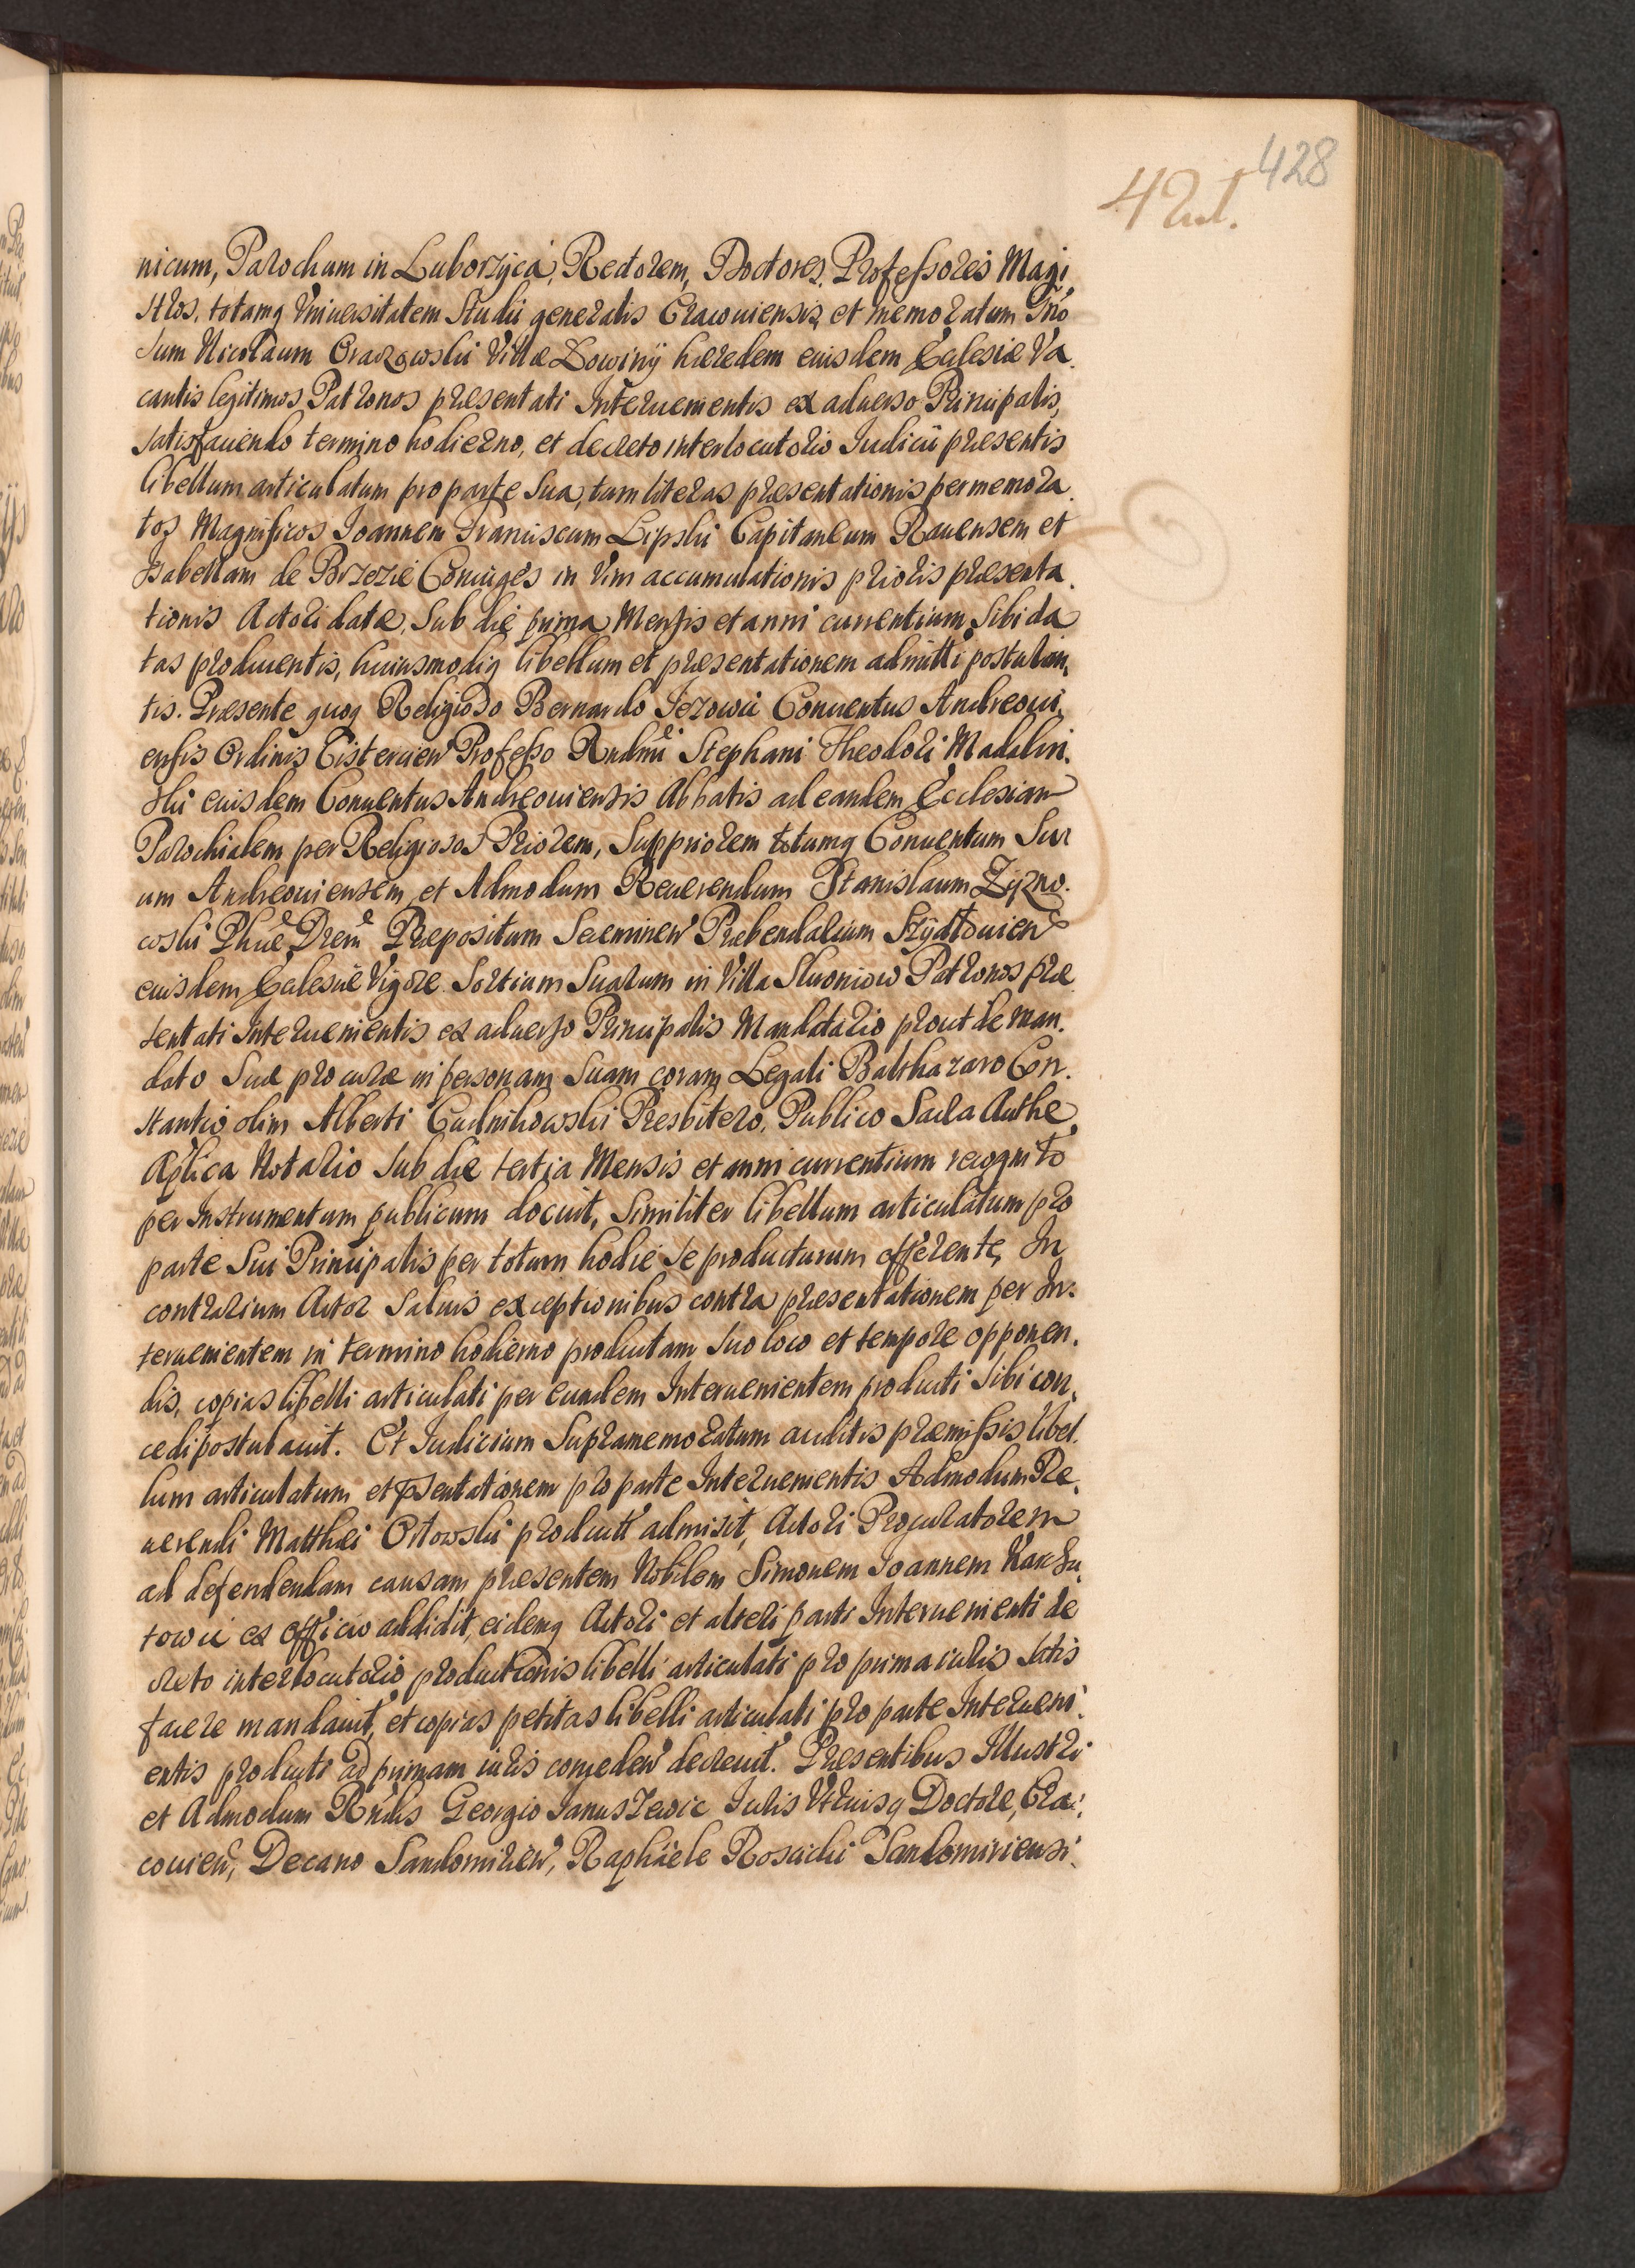 428
421.
nicum, Parochum in Luborzyca, Rectorem, Doctores, Professores Magi,
stros, totamq Vniuersitatem Studii generalis Cracouiensis, et memoratum Gño
sum Nicolaum Oraczowski Villæ Łowiny hæredem eiusdem Ecclesiæ Va
cantis legitimos Patronos præsentati Interuenientis ex aduerso Principalis,
satisfaciendo termino hodierno, et decreto interlocutorio Iudicii præsentis
libellum articulatum pro parte sua, tum literas præsentationis per memora
tos Magnificos Joannem Franciscum Lipski Capitaneum Rauensem et
Isabellam de Brzezie Coniuges in Vim accumulationis prioris præsenta
tionis Actori datæ, sub die prima Mensis et anni currentium sibi da
tas producentis, huiusmodiq libellum et præsentationem admitti postulan,
tis. Præsente quoq Religioso Bernardo Jezowic Conuentus Andreoui,
ensis Ordinis Cistercien Professo Rndmi Stephani Theodori Madalin,
ski eiusdem Conuentus Andreouiensis Abbatis ad eandem Ecclesiam
Parochialem per Religiosos Priorem, Suppriorem totumq Conuentum Su
um Andreouiensem, et Admodum Reuerendum Stanislaum Zyzno
woski Phiæ Drem Præpositum Præbendarium Szydłouien
eiusdem Ecclesiæ Vigore Sortium Suarum in Villa Patronos præ
sentati Interuenientis ex aduerso Principalis Mandatario prout de man,
dato suæ procuræ in personam suam coram Legali Balthazaro Con,
stantio olim Alberti Cudnikowski Presbitero, Publico Sacra Authe
Aplica Notario sub die tertia Mensis et anni currentium recognito
per Instrumentum publicum docuit, similiter libellum articulatum pro
parte sui Principalis per totum hodie se producturum offerente, In
contrarium Actor saluis exceptionibus contra præsentationem per In,
teruenientem in termino hodierno productam suo loco et tempore opponen,
dis, copias libelli articulati per eundem Interuenientem producti sibi con,
cedi postulauit. Et Iudicium supramemoratum auditis præmissis libel,
lum articulatum et psentationem pro parte Interuenientis Admodum Re,
uerendi Matthæi Orłowski product admisit, Actori Procuratorem
ad defendendam causam præsentem Nobilem Simonem Joannem
towic ex officio addidit, eidemq Actori et alteri parti Interuenienti de
creto interlocutorio productionis libelli articulati pro prima iuris satis
facere mandauit, et copias petitas libelli articulati pro parte Interueni,
entis producti ad primam iuris conceden decreuit. Præsentibus Illustri
et Admodum Rndis Georgio Januszewic Iuris Vtriusq Doctore, Cra,
couien, Decano Sandomirien, Raphaele Rosicki Sandomiriensi,